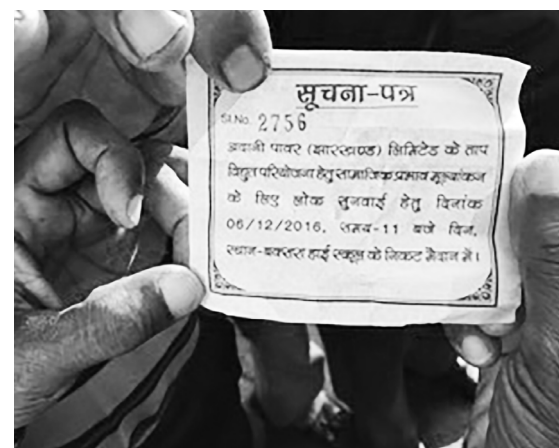 सूचना-पत्र
Sl.No. 2756
अदानी पावर (झारखण्ड) लिमिटेड के ताप
विद्युत परियोजना हेतु सामाजिक प्रभाव मूल्यांकन
के लिए लोक सुनवाई हेतु दिनांक
06/12/2016, समय-11 बजे दिन,
स्थान-बक्सरा हाई स्कूल के निकट मैदान में।